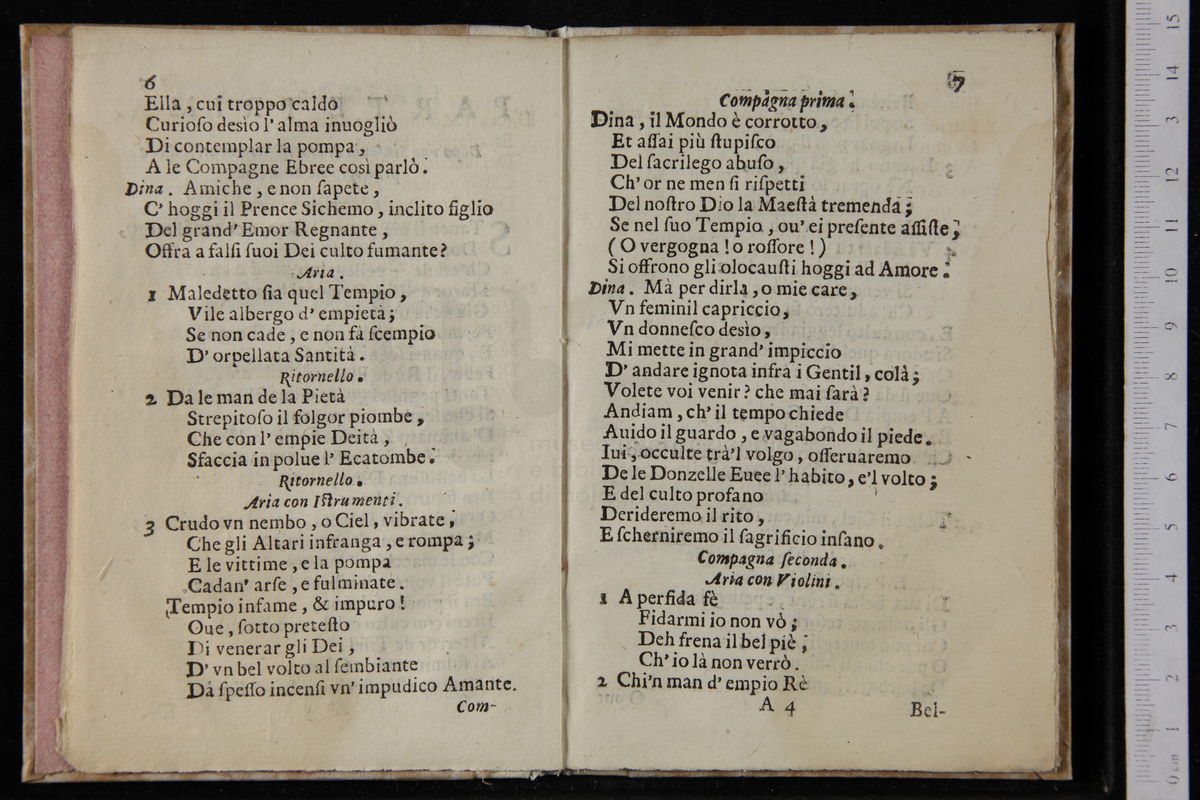 6
Ella , cui troppo caldo
Curioſo desìo l' alma inuogliò
Di contemplar la pompa ,
A le Compagne Ebree così parlò .
Dina . Amiche , e non ſapete ,
C' hoggi il Prence Sichemo , inclito figlio
Del grand' Emor Regnante ,
Offra a falſi ſuoi Dei culto fumante ?
Aria .
1 Maledetto ſia quel Tempio ,
Vile albergo d' empietà ;
Se non cade , e non fà ſcempio
D' orpellata Santità .
Ritornello .
2 Da le man de la Pietà
Strepitoſo il folgor piombe ,
Che con l' empie Deità ,
Sfaccia in polue l' Ecatombe .
Ritornello .
Aria con Iſtrumenti .
3 Crudo vn nembo , o Ciel , vibrate ,
Che gli Altari infranga , e rompa ;
E le vittime , e la pompa
Cadan' arſe , e fulminate .
Tempio infame , & impuro !
Oue , ſotto preteſto
Di venerar gli Dei ,
D' vn bel volto al ſembiante
Dà ſpeſſo incenſi vn' impudico Amante .
Com-
7
Compagna prima .
Dina , il Mondo è corrotto ,
Et aſſai più ſtupiſco
Del ſacrilego abuſo ,
Ch' or ne men ſi riſpetti
Del noſtro Dio la Maeſtà tremenda ;
Se nel ſuo Tempio , ou' ei preſente aſſiſte ,
( O vergogna ! o roſſore ! )
Si offrono gli olocauſti hoggi ad Amore .
Dina . Mà per dirla , o mie care ,
Vn feminil capriccio ,
Vn donneſco desìo ,
Mi mette in grand' impiccio
D' andare ignota infra i Gentil , colà ;
Volete voi venir ? che mai ſarà ?
Andiam , ch' il tempo chiede
Auido il guardo , e vagabondo il piede .
Iui , occulte trà'l volgo , oſſeruaremo
De le Donzelle Euee l' habito , e'l volto ;
E del culto profano
Derideremo il rito ,
E ſcherniremo il ſagrificio inſano .
Compagna ſeconda .
Aria con Violini .
1 A perfida fè
Fidarmi io non vò ;
Deh frena il bel piè ;
Ch' io là non verrò .
2 Chi'n man d' empio Rè
A 4
Bel-